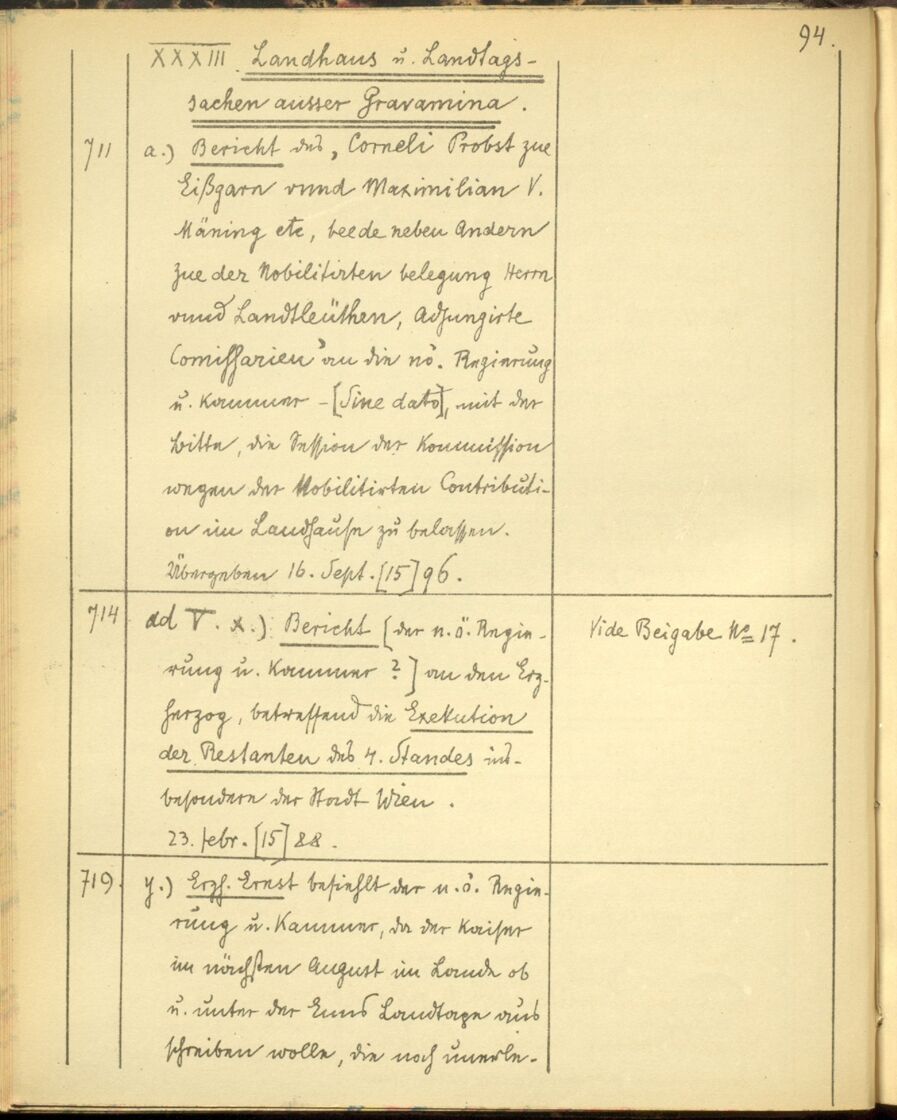 94.
XXXIII. Landhaus u. Landtags-
sachen ausser Gravamina.
711 a.) Bericht des „Corneli Probst zue
Eißgarn vnnd Maximilian V.
Mäning etc, beede neben Andern
zue der Nobilitirten belegung Herrn
vnnd Landtleüthen, Adjungirte
Comißarien" an die nö. Regierung
u. Kammer - [Sine dato], mit der
Bitte, die Session der Kommission
wegen der Nobilitirten Contributi-
on im Landhause zu belassen.
Übergeben 16. Sept. [15]96.
714 ad V. x.) Bericht [der n.ö. Regie-
rung u. Kammer ?] an den Erz-
herzog, betreffend die Exekution
der Restanten des 4. Standes ins-
besondere der Stadt Wien.
23. febr. [15]88.
Vide Beigabe No 17.
719. y.) Erzh. Ernst befiehlt der n.ö. Regie-
rung u. Kammer, da der Kaiser
im nächsten August im Lande ob
u. unter der Enns Landtage aus
schreiben wolle, die noch unerle-